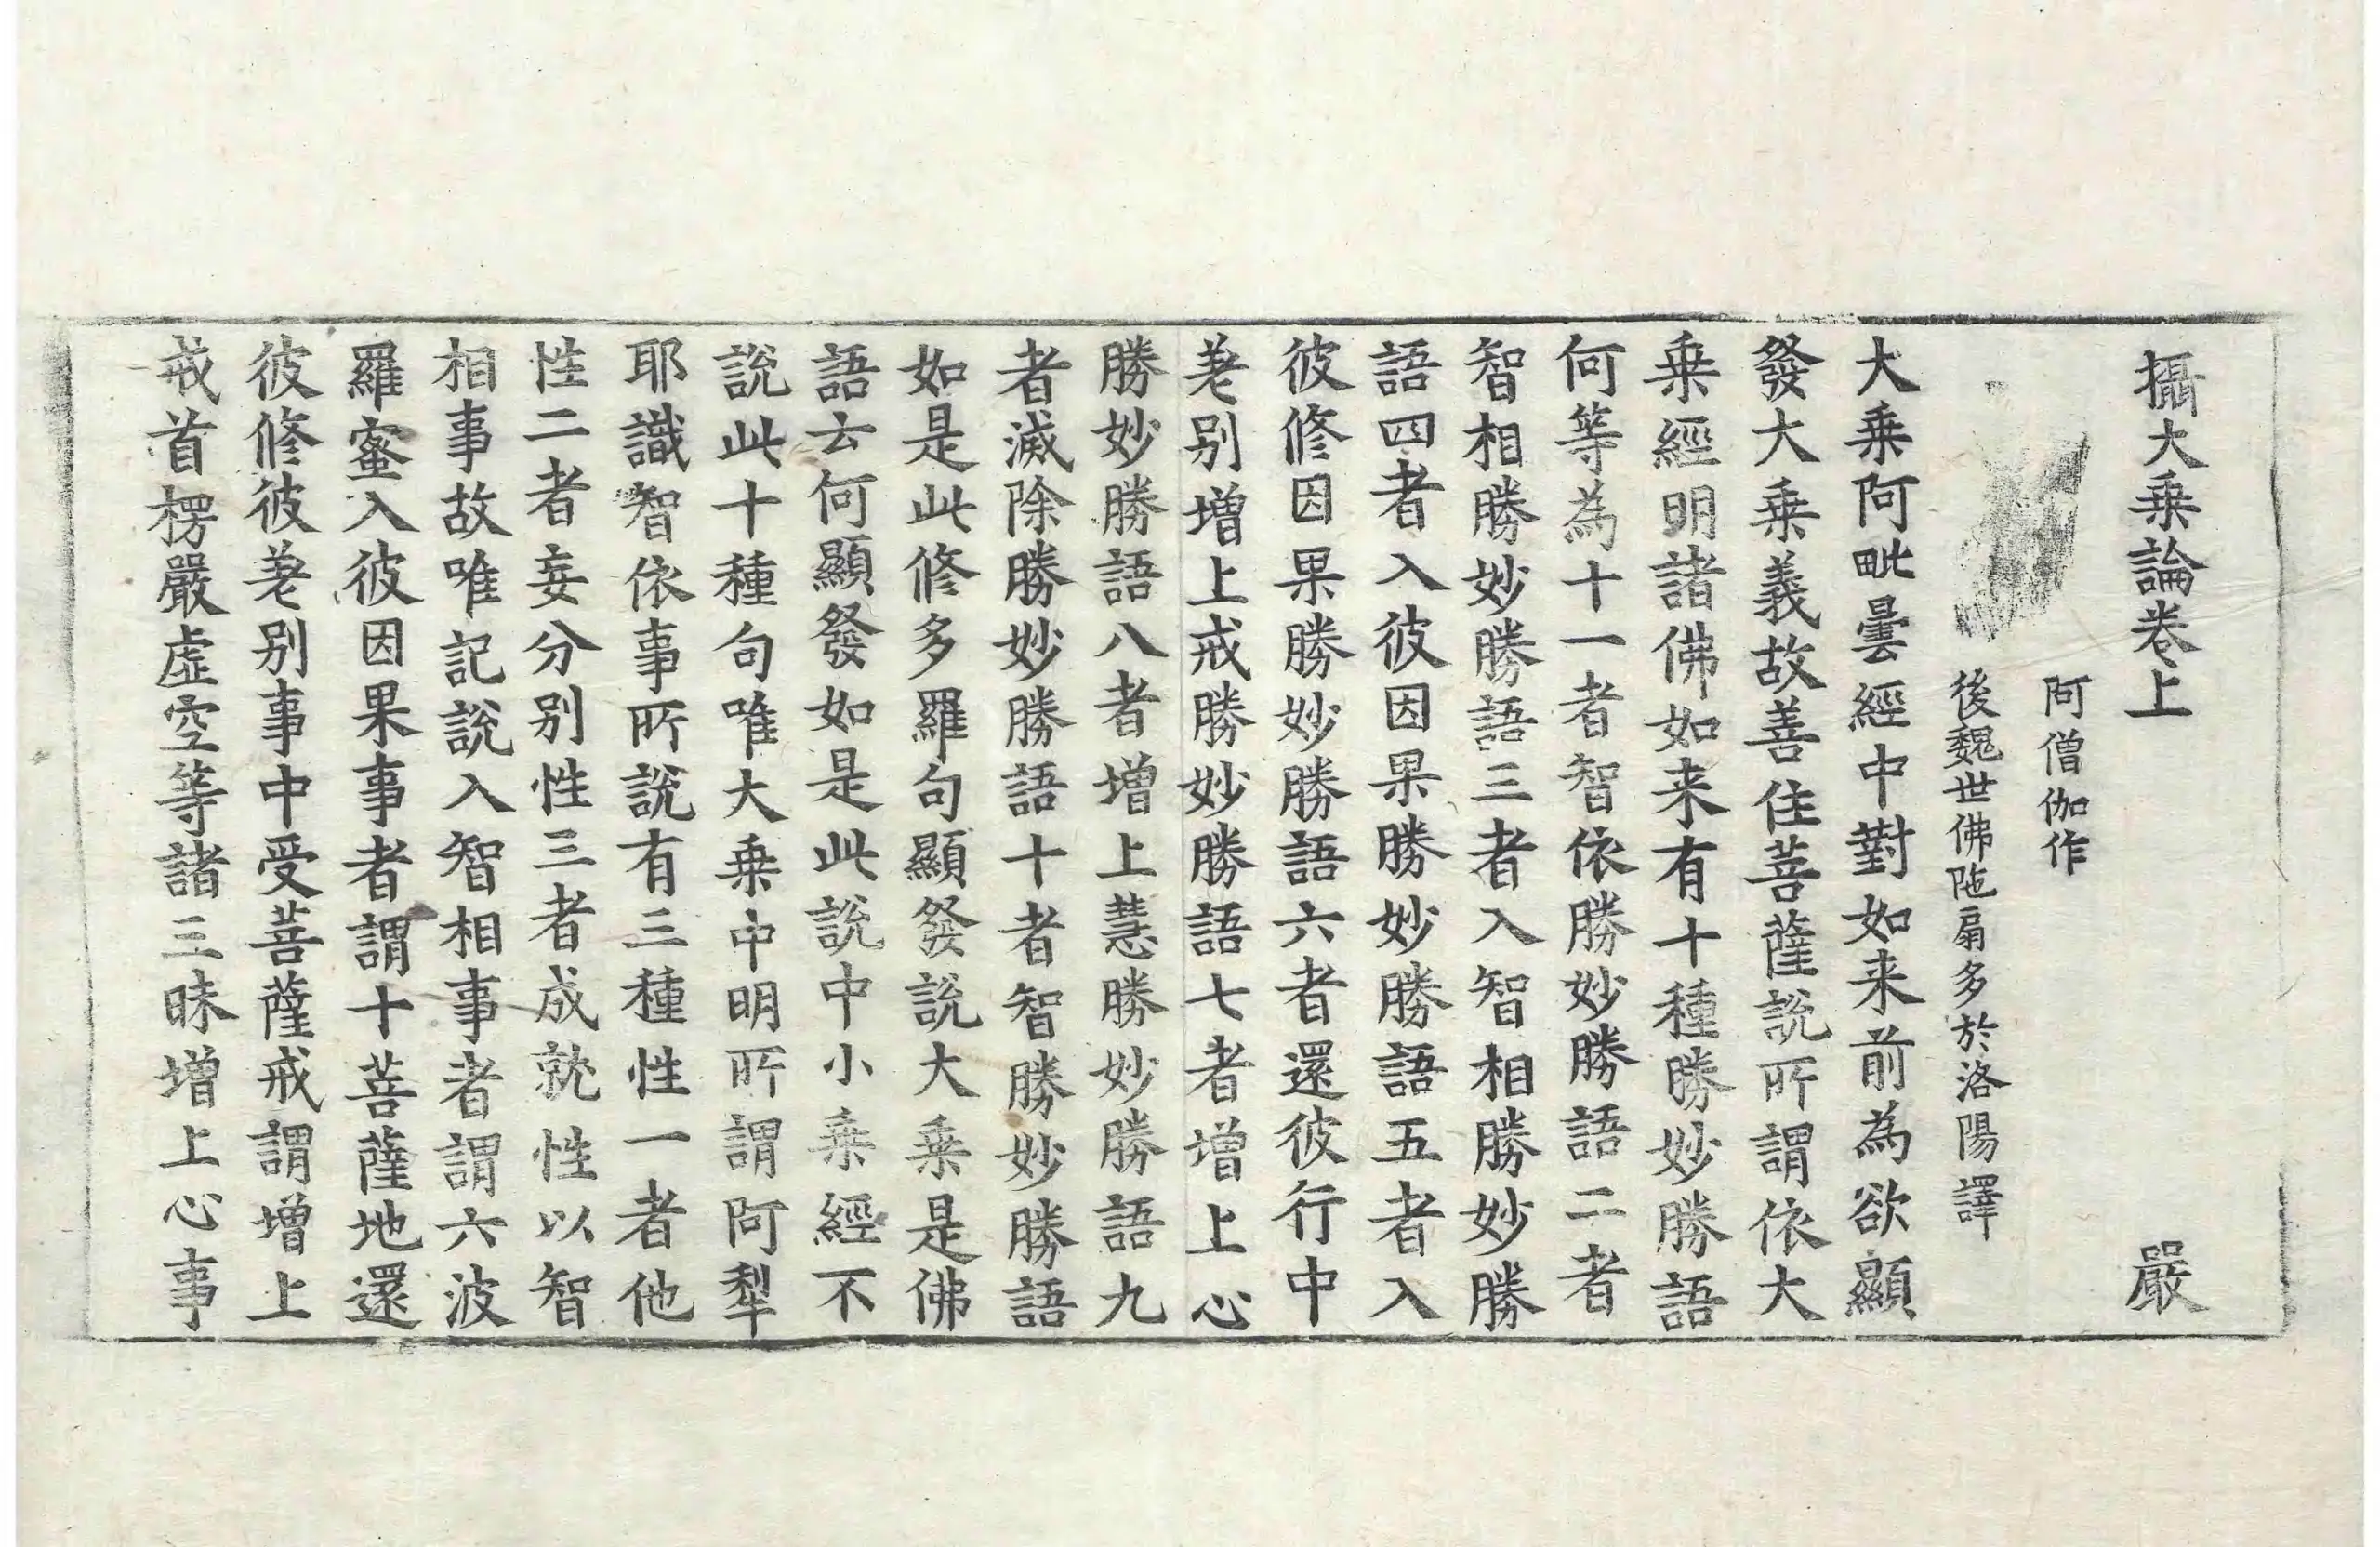 攝大乗論卷上 嚴
阿僧伽作
後魏世佛陁扇多於洛陽譯
大乗阿毗曇經中對如来前為欲顯
發大乗義故善住菩薩說所謂依大
乗經明諸佛如来有十種勝妙勝語
何等為十一者智依勝妙勝語二者
智相勝妙勝語三者入智相勝妙勝
語四者入彼因果勝妙勝語五者入
彼修因果勝妙勝語六者還彼行中
差别增上戒勝妙勝語七者增上心
勝妙勝語八者增上慧勝妙勝語九
者滅除勝妙勝語十者智勝妙勝語
如是此修多羅句顯發說大乗是佛
語云何顯發如是此說中小乗經不
說此十種句唯大乗中明所謂阿犁
耶識智依事所說有三種性一者他
性二者妄分别性三者成就性以智
相事故唯記說入智相事者謂六波
羅蜜入彼因果事者謂十菩薩地還
彼修彼差别事中受菩薩戒謂增上
戒首楞嚴虛空等諸三昧增上心事